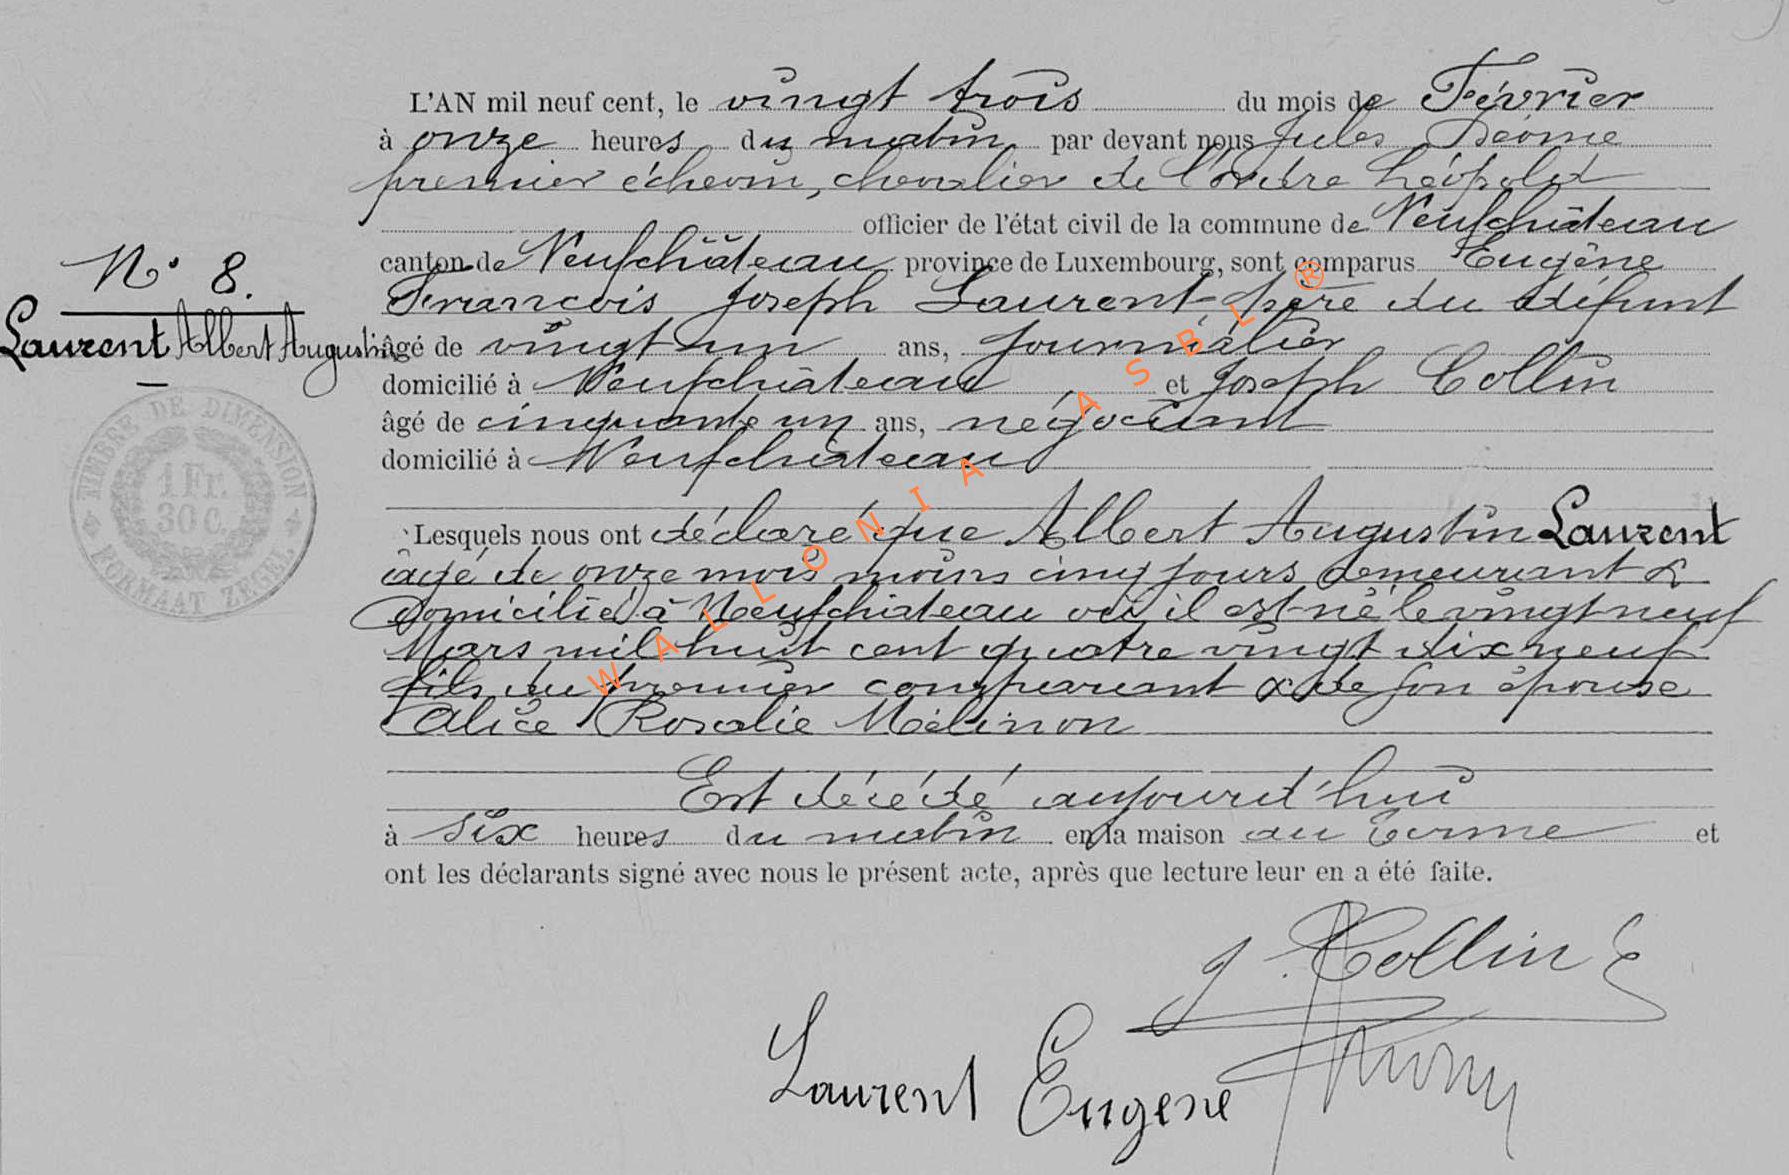 L'AN mil neuf cent, le vingt trois du mois de Février
à onze heures du matin par devant nous Jules
premier échevin, chevalier de l'ordre Léopold
officier de l'état civil de la commune de Neufchâteau
N° 8.
canton de Neufchâteau province de Luxembourg, sont comparus Eugène
François Joseph Laurent, père du défunt
Laurent Albert Augustin
âgé de vingt un ans, journalier
domicilié à Neufchâteau et Joseph Collin
âgé de cinquante un ans, négociant
domicilié à Neufchâteau
TIMBRE DE DIMENSION
1 Fr.
30 C.
FORMAAT ZEGEL
Lesquels nous ont déclaré que Albert Augustin Laurent
âgé de onze mois moins cinq jours demeurant &
domicilié à Neufchâteau où il est né le vingt neuf
Mars mil huit cent quatre vingt dix neuf
fils du premier comparant & de son épouse
Alice Rosalie Mélinon
Est décédé aujourd'hui
à six heures du matin en la maison au Terme et
ont les déclarants signé avec nous le présent acte, après que lecture leur en a été faite.
J. Collin E
Laurent Eugene
WALLONIA ASBL ®